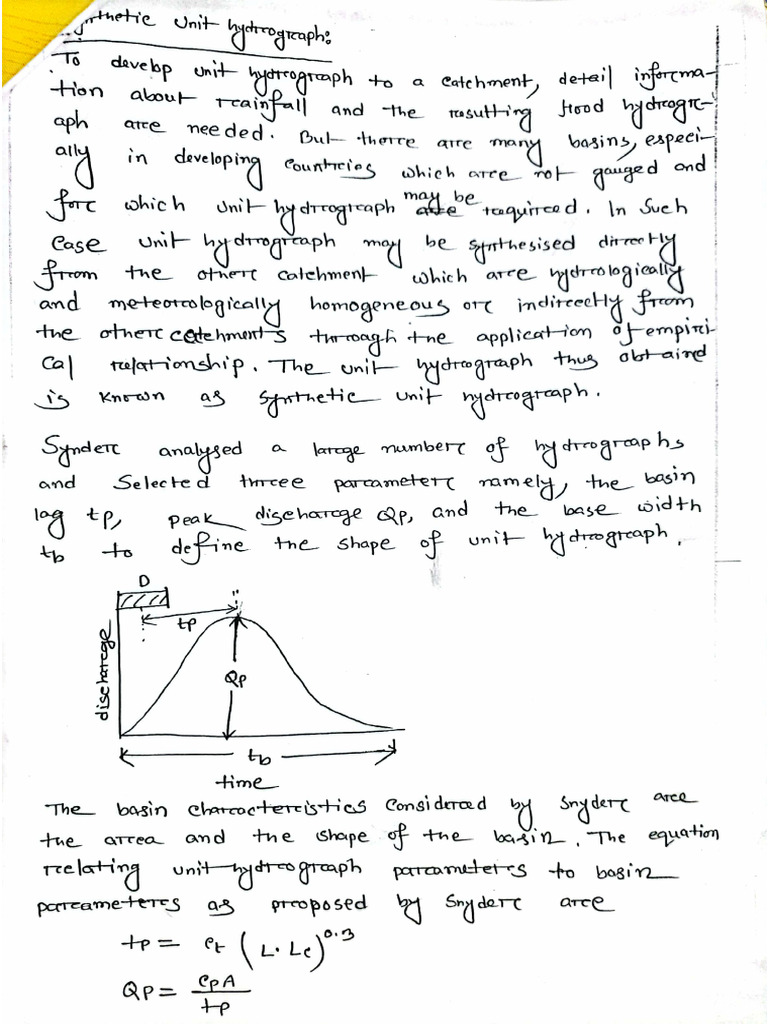 Synthetic Unit hydrograph:
To develop unit hydrograph to a catchment, detail informa-
tion about rainfall and the resulting flood hydrogr-
aph are needed. But there are many basins, especi-
ally in developing Countries which are not gauged and
for which unit hydrograph may be required. In such
Case unit hydrograph may be synthesised directly
from the other catchment which are hydrologically
and meteorologically homogeneous or indirectly from
the other catchments through the application of empiri
cal relationship. The unit hydrograph thus obtained
is known as synthetic unit hydrograph.
Synder analysed a large number of hydrographs
and Selected three parameter namely, the basin
lag tp, peak discharge Qp, and the base width
tb to define the shape of unit hydrograph.
D
tp
discharge
Qp
tb
time
The basin characteristics Considered by Snyder are
the area and the shape of the basin. The equation
relating unit hydrograph parameters to basin
parameters as proposed by Snyder are
tp = Ct (L. Lc)^0.3
Qp = CpA / tp